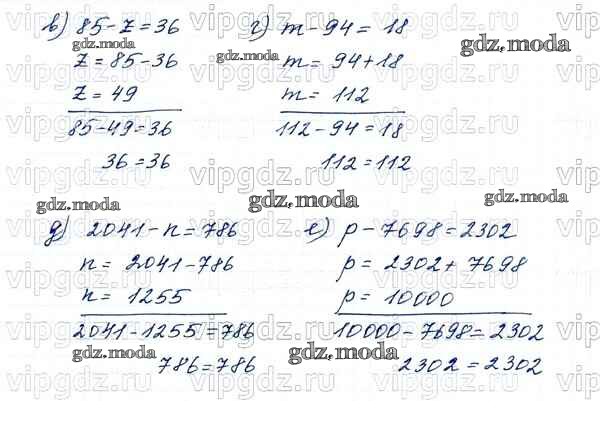 в) 85-z=36
z=85-36
z=49
85-49=36
36=36
г) m-94=18
m=94+18
m=112
112-94=18
112=112
д) 2041-n=786
n=2041-786
n=1255
2041-1255=786
786=786
е) p-7698=2302
p=2302+7698
p=10000
10000-7698=2302
2302=2302
gdz.moda
vipgdz.ru